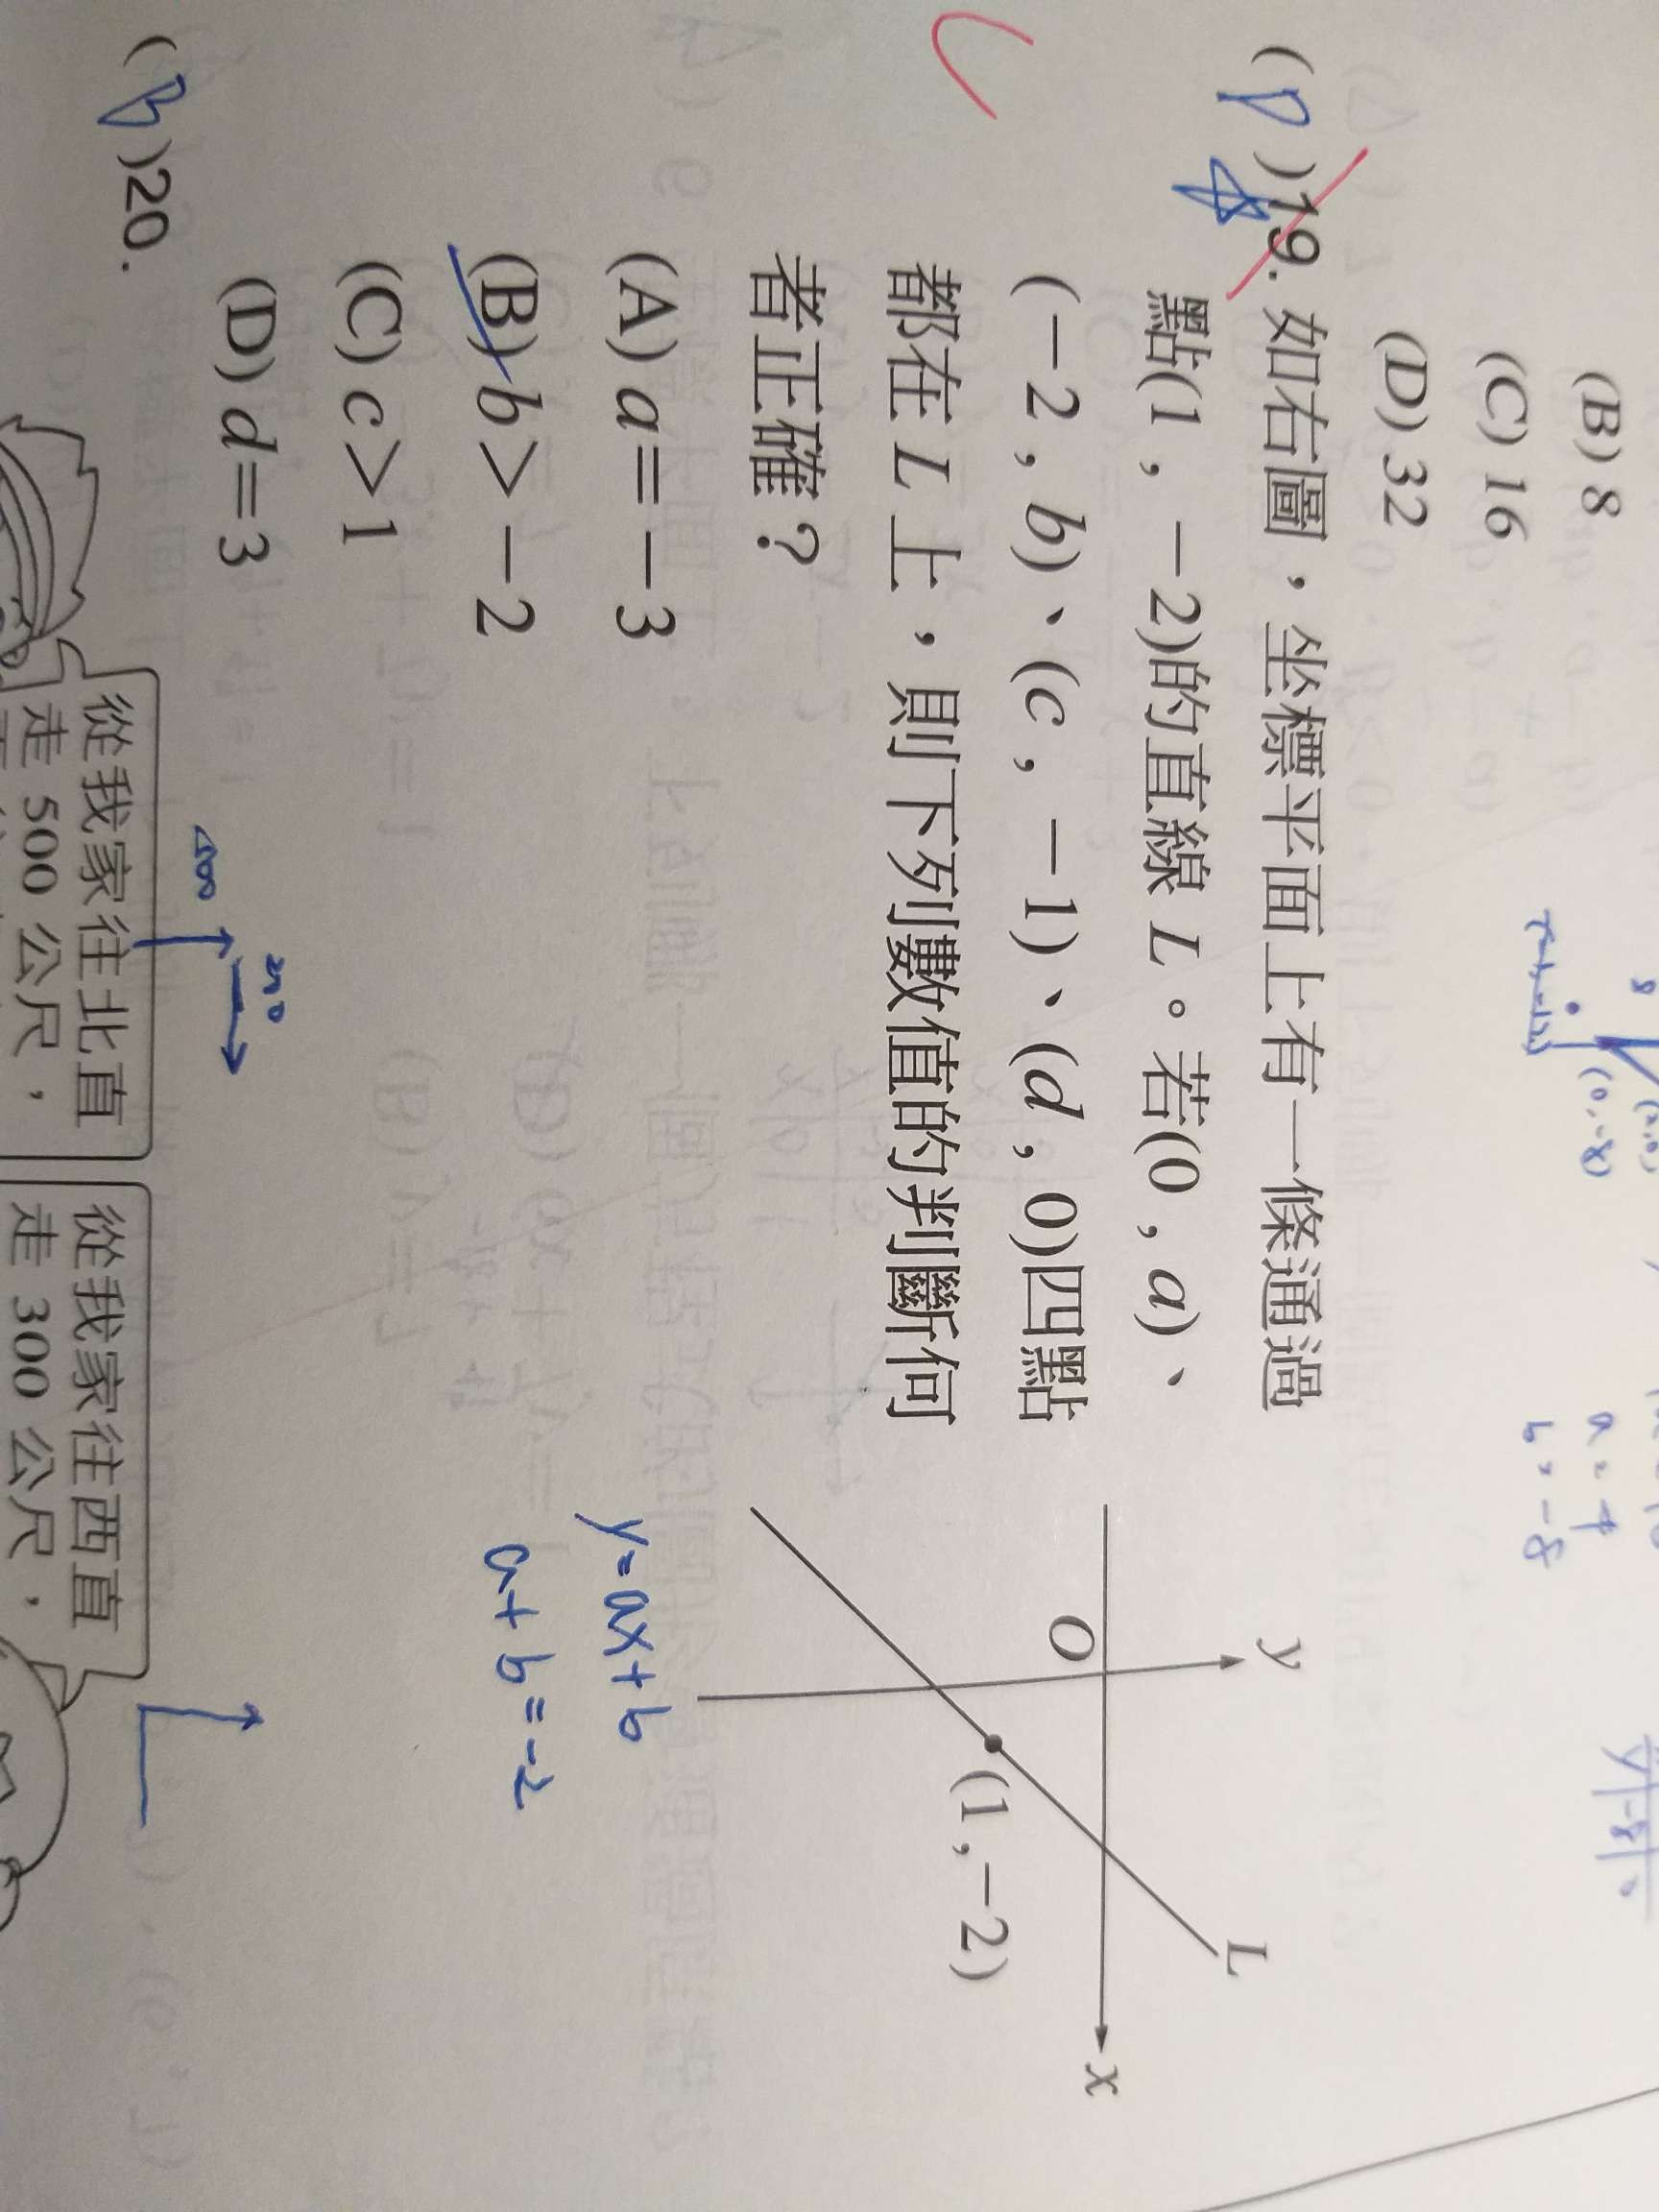 (B) 8
(C) 16
(D) 32
a = 4
b = -8
(0,-8)
( D )19. 如右圖，坐標平面上有一條通過
點(1 , -2)的直線 L。若(0 , a)、
(-2 , b)、(c , -1)、(d , 0)四點
都在 L 上，則下列數值的判斷何
者正確？
(A) a=-3
(B) b>-2
(C) c>1
(D) d=3
y
L
O
x
(1,-2)
y=ax+b
a+b=-2
( B )20.
從我家往北直
走 500 公尺，
從我家往西直
走 300 公尺，